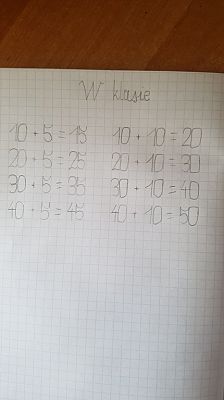 W klasie
10 + 5 = 15 10 + 10 = 20
20 + 5 = 25 20 + 10 = 30
30 + 5 = 35 30 + 10 = 40
40 + 5 = 45 40 + 10 = 50